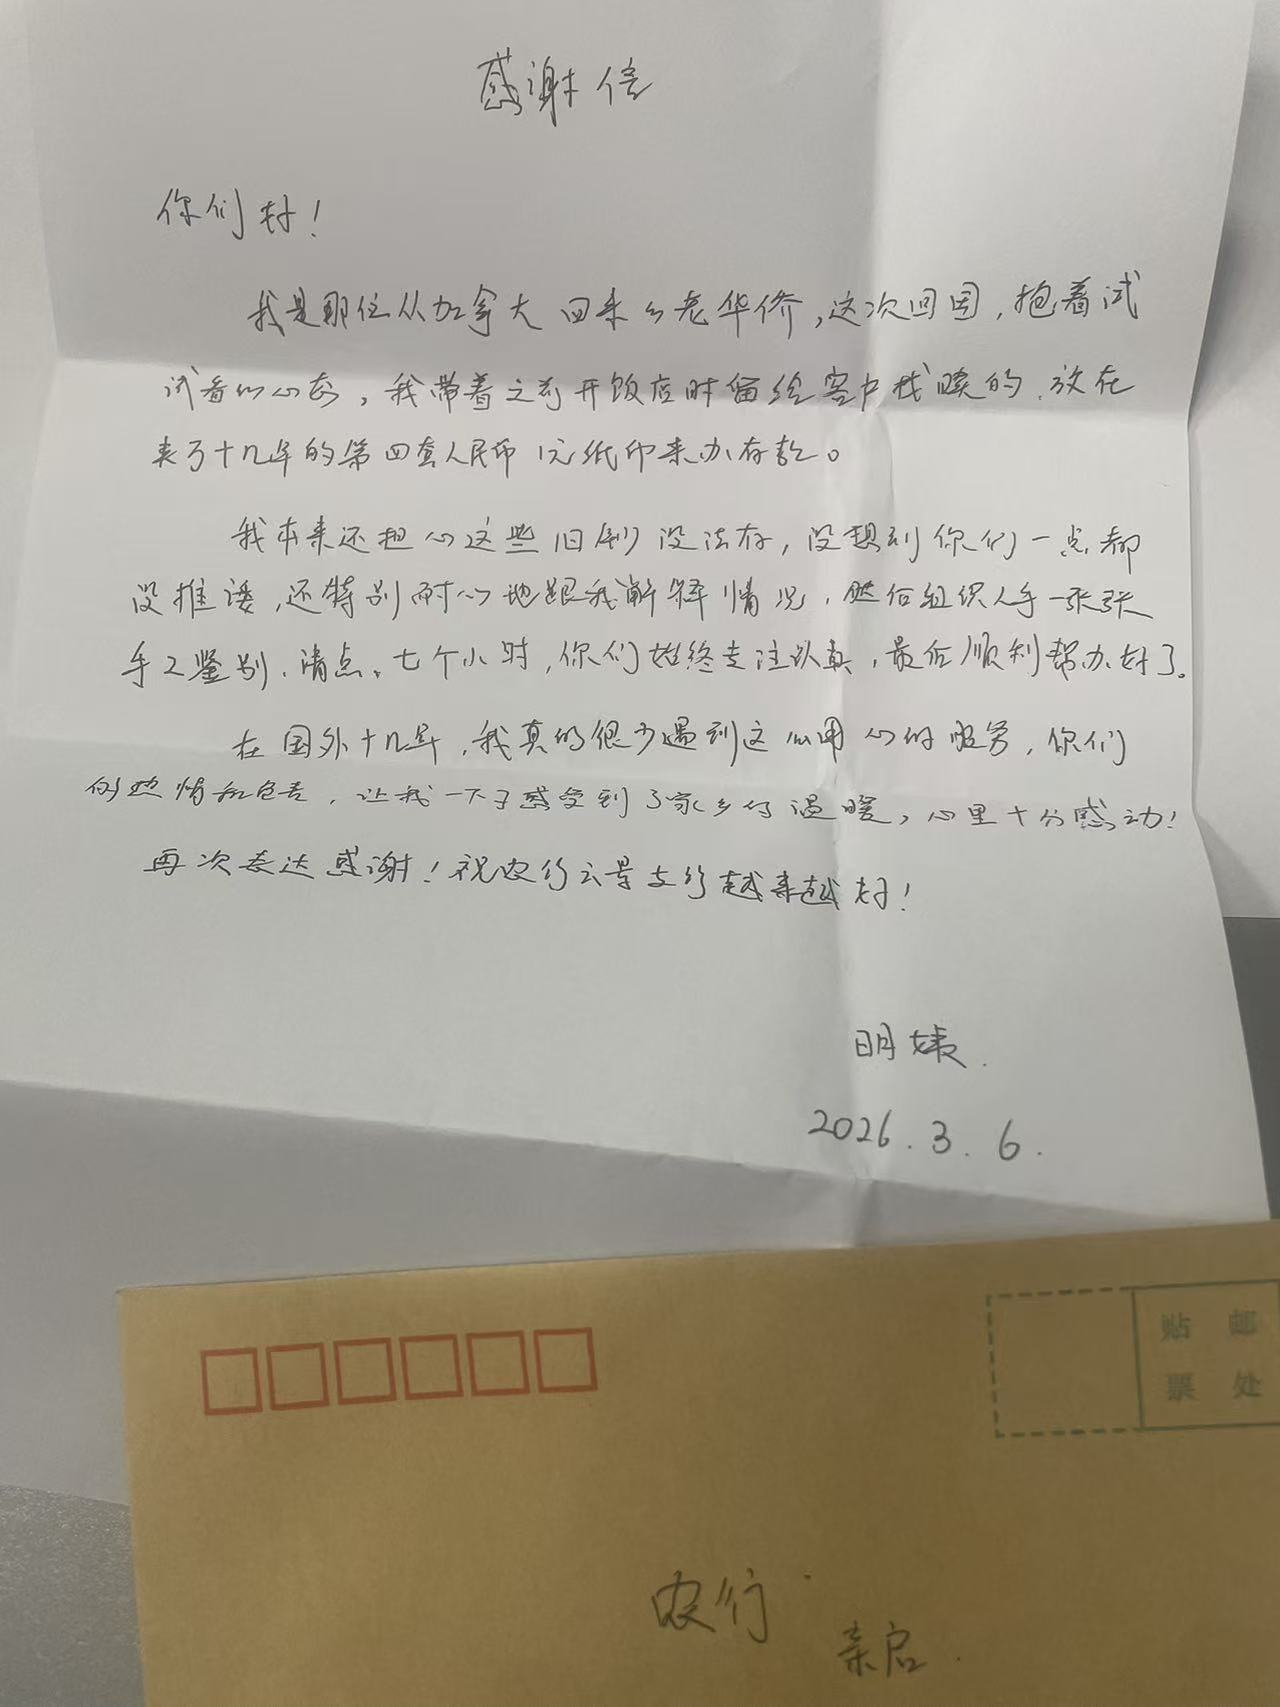 感谢信
你们好！
我是那位从加拿大回来的老华侨，这次回国，抱着试
试看的心态，我带着之前开饭店时留给客户找赎的、放在
家了十几年的第四套人民币1元纸币来办存款。
我本来还担心这些旧钞没法存，没想到你们一点都
没推诿，还特别耐心地跟我解释情况，然后组织人手一张张
手工鉴别、清点、七个小时，你们始终专注认真，最后顺利帮办好了。
在国外十几年，我真的很少遇到这么用心的服务，你们
的热情和负责，让我一下子感受到了家乡的温暖，心里十分感动！
再次表达感谢！祝农行云景支行越来越好！
明姨.
2026.3.6.
贴 邮
票 处
农行
亲启.